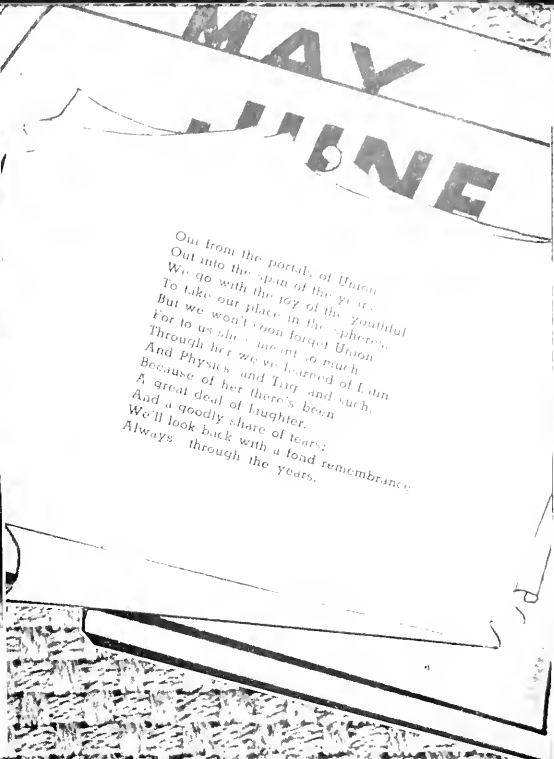 MAY
JUNE
Out from the portals of Union
Out into the span of the years
We go with the joy of the youthful
To take our place in the spheres
But we won't soon forget Union
For to us she's meant so much
Through her we've learned of Latin
And Physics and Trig and such.
Because of her there's been
A great deal of laughter,
And a goodly share of tears;
We'll look back with a fond remembrance
Always through the years.